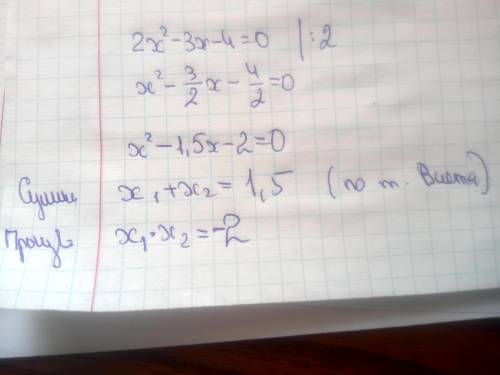 2x²-3x-4=0 |:2
x²-3/2x-4/2=0
x²-1,5x-2=0
Сумма x₁+x₂=1,5 (по т. Виета)
Произв x₁·x₂=-2